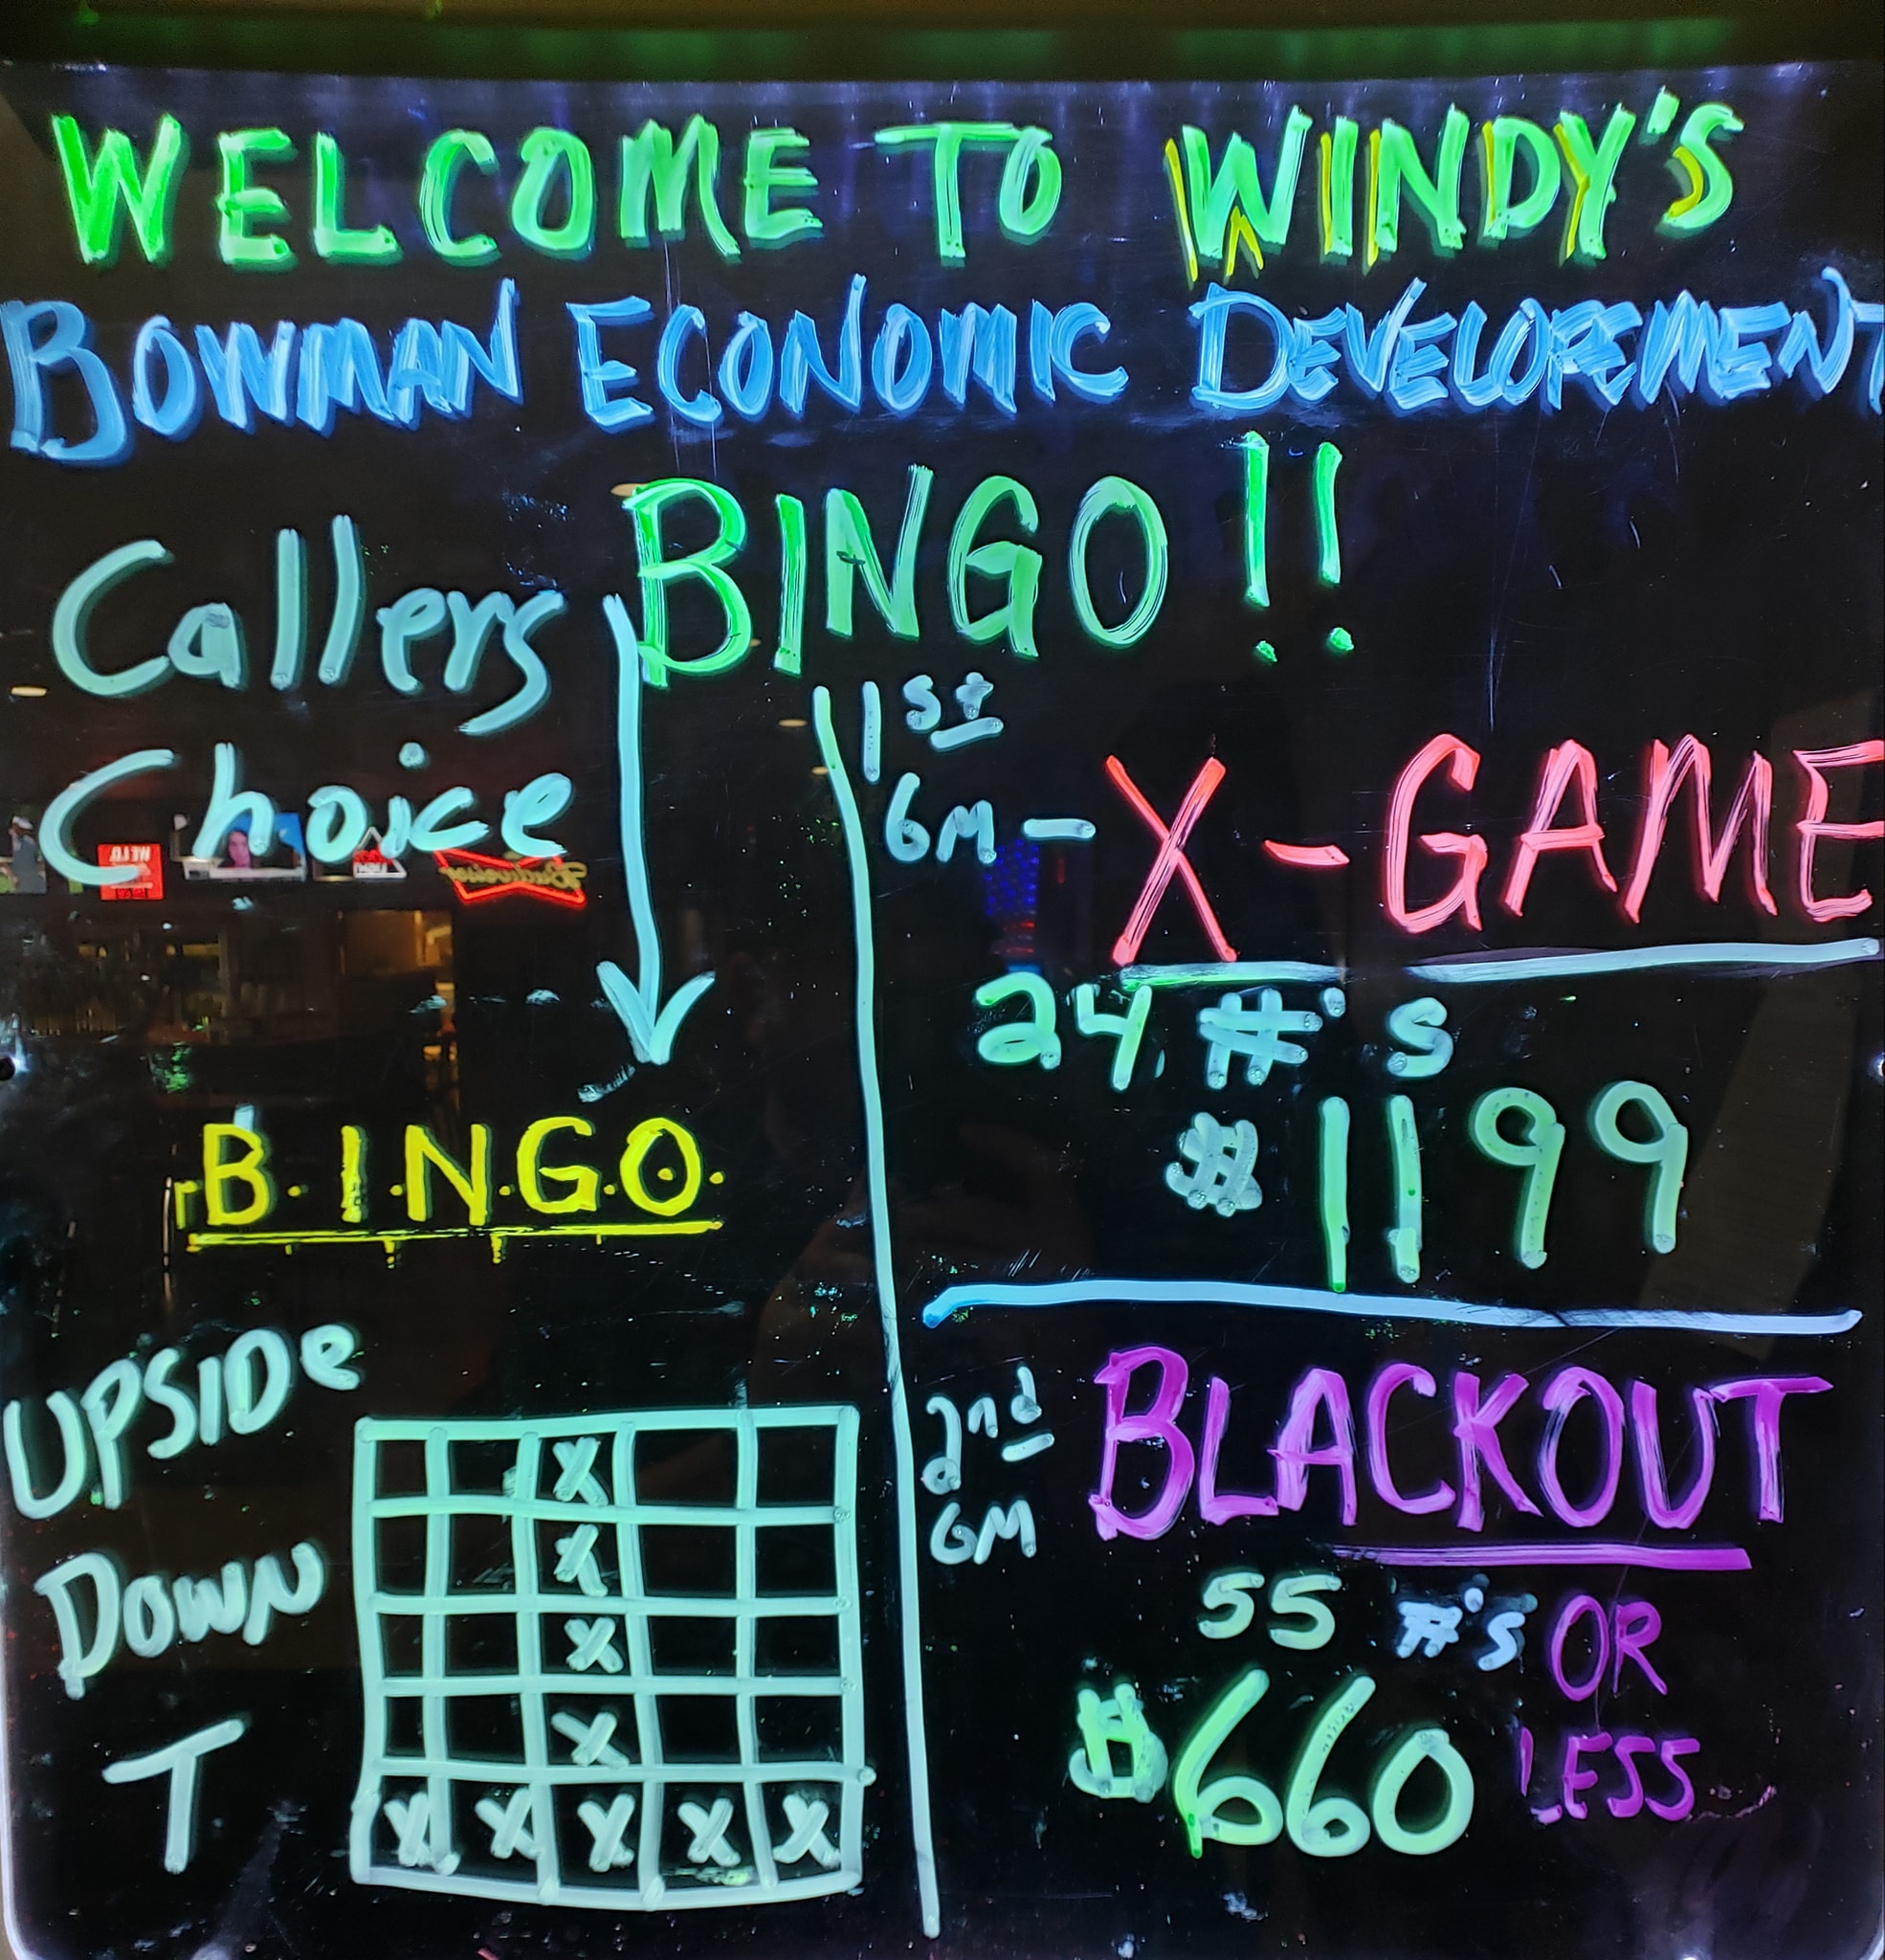 WELCOME TO WINDY'S
BOWMAN ECONOMIC DEVELOPEMENT
BINGO!!
Callers
Choice
B·I·N·G·O·
UPSIDe
DOWN
T
X
X
X
X
X X X X X
1st
GM – X-GAME
24 #'s
$1199
2nd
GM
BLACKOUT
55 #'s OR
$660 LESS
Budweiser